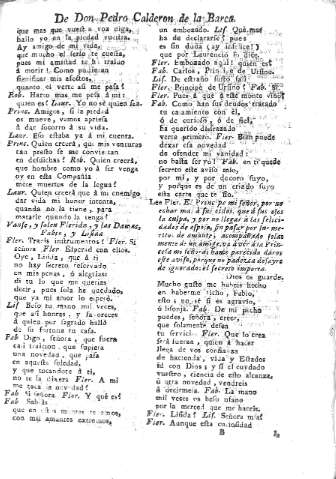 De Don Pedro Calderon de la Barca.
que mas que vuestra voz diga,
hallo yo en la piedad vuestra.
Ay amigo de mi vida,
que mucho que el cielo te
pues mi amistad te ha traido
à morir! Como pudieran
sacrificar mis afectos,
quando el verte asi me pesa!
Rob. Harto mas me pesa à mi:
quien es? Laur. Yo no sé quien sea.
Princ. Amigos, si la piedad
os mueve, vamos aprisa
à dar socorro à su vida.
Laur. Eso estaba yá à mi cuenta.
Princ. Quien creerá, que mis venturas
tan presto se me convierten
en desdichas! Rob. Quien creerá,
que hombre como yo à ser venga
oy en esta Compañia
mete muertos de la legua!
Laur. Quien creerá que à mi enemigo
dar vida mi honor intenta,
quando no la tiene, para
matarle quando la tenga!
Vanse, y salen Flerida, y las Damas,
Fabio, y Lisida
Fler. Traeis instrumentos? Fler. Si
señora Fler Esperad con ellos.
Oye, Laura, que à ti
no hay secreto reservado
en mis penas, ò alegrias
di tu lo que me querias
decir, pues sola he quedado,
que yá mi amor lo esperó.
Lis Beso tu mano mil veces,
que asi honras, y favoreces
à quien por sagrado halló
de su fortuna tu casa.
Fab Digo, señora, que fuera
casi traicion, que supiera
una novedad, que pasa
en aquesta soledad,
y que tocandote à ti,
no te la dixera Fler. A mi
me toca novedad?
Fab Si señora Fler. Y qué es?
Fab Sabrás
que en estos montes te amos,
con mil amantes extremos,
un embozado. Lis. Qué mas
ha de declararse? pues
es sin duda (ay infelice!)
que por Laurencio lo dice.
Fler. Embozado aqui? quien es?
Fab. Carlos, Principe de Ursino.
Lis. De estraño susto salí
Fler. Principe de Ursino? Fab. Si.
Fler. Pues à qué à este monte vino?
Fab. Como han sus deudos tratado
tu casamiento con él,
ò de curioso, ò de fiel,
ha querido disfrazado
verte primero. Fler. Bien puede
dezar esa novedad
de ofender mi vanidad:
no basta ser yo? Fab. en ti quede
secreto este aviso mio,
por mi, y por decoro suyo,
y porque es de un criado suyo
esta carta que te fio.
Lee Fler. El Princ pe mi señor, por no
echar mal à sus oidos, que à sus ojos
la culpa, y por no llegar à las felicidades
de esposo, sin pasar por los meritos
de amante, acompañado solamente
de un amigo, vá à vér à la Princesa
mi señora: hame parecido daros
este aviso, porque no padezca desayres
de ignorado: el secreto importa.
Dios os guarde.
Mucho gusto me habeis hecho
en haberme dicho, Fabio,
esto; no sé si es agravio,
ò lisonja. Fab. De mi pecho
puedes, señora, creer,
que solamente desea
tu servicio. Fler. Que lo crea
será fuerza, quien à hacer
llega de vos confianza
de hacienda, vida y Estados
id con Dios; y si el cuydado
vuestro, ciencia de esto alcanza,
ù otra novedad, vendreis
à decirmela. Fab. La mano
mil veces os beso ufano
por la merced que me haceis.
Fler. Lisida? Lis. Señora mia?
Fler. Aunque esta curiosidad
B